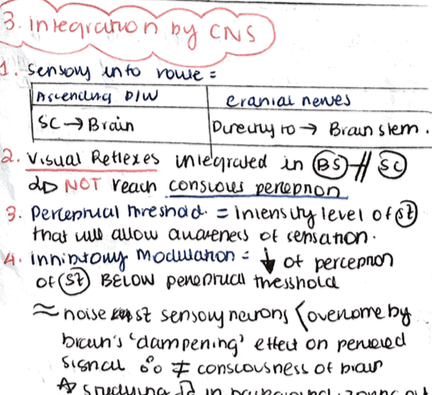 3. Integration by CNS
1. Sensory info route =
Ascending P/W
cranial nerves
SC → Brain
Directly to → Brain stem.
2. Visual Reflexes integrated in BS // SC
do NOT reach conscious perception
3. Perceptual threshold = Intensity level of St
that will allow awareness of sensation.
4. Inhibitory Modulation = ↓ of perception
of St BELOW perceptual threshold
≈ noise st sensory neurons (overcome by
brain's 'dampening' effect on perceived
signal ∴ ≠ consciousness of brain
studying in background zoning out